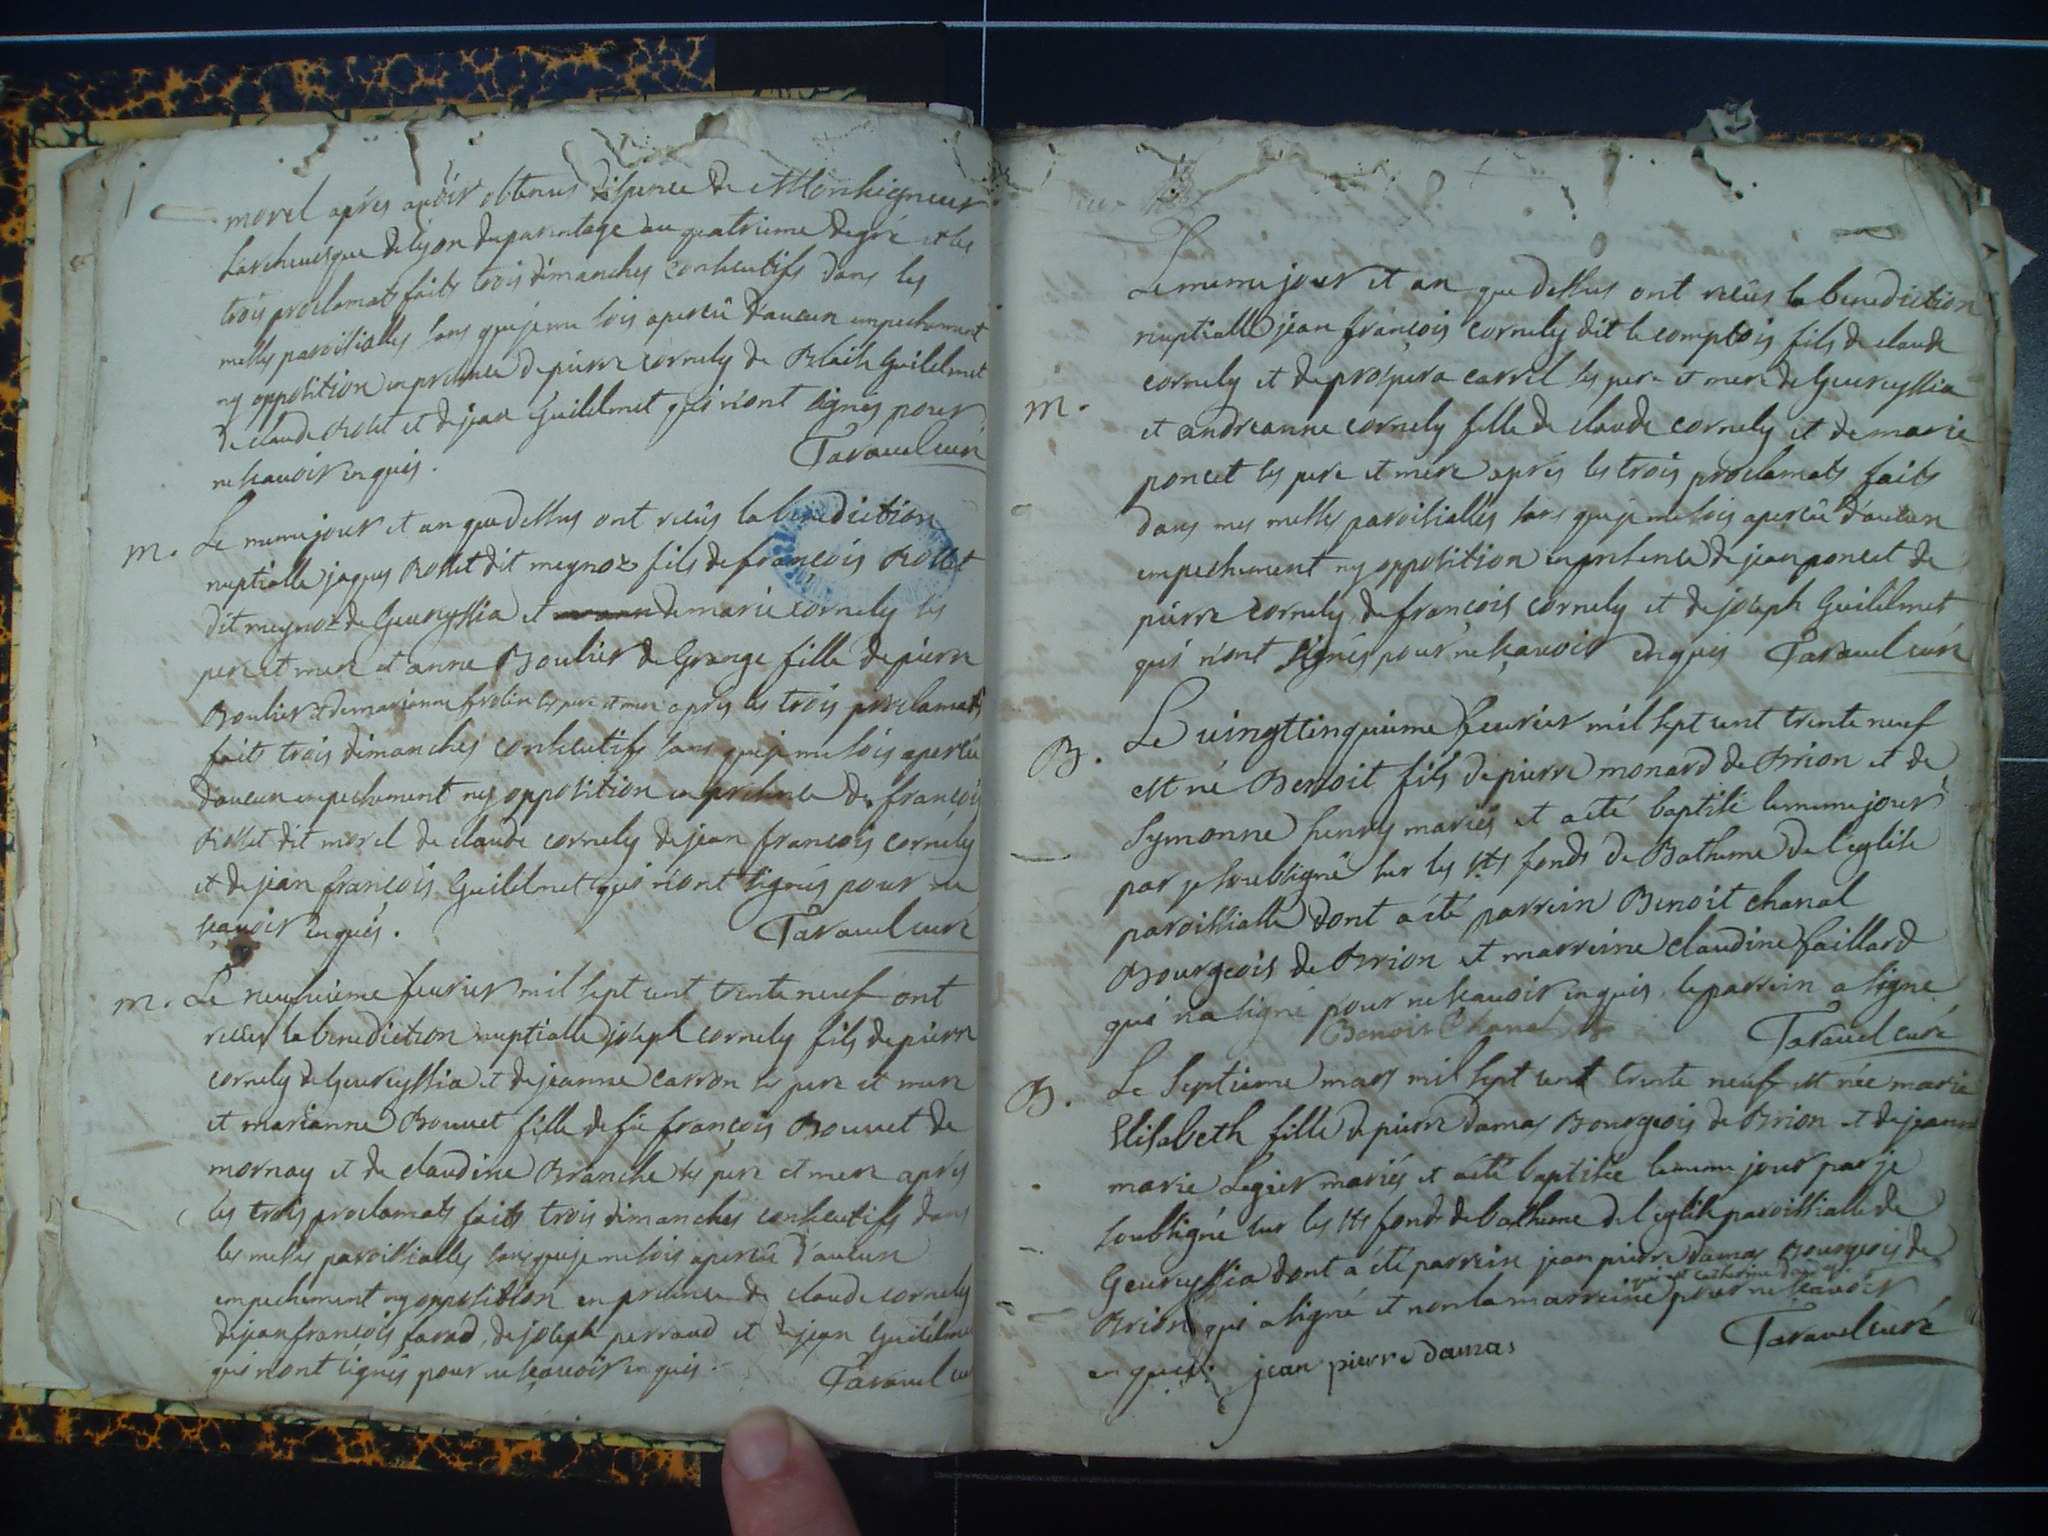 morel aprés avoir obtenus dispence de Monseigneur
L'archevesque de lyon du parentage au quatrieme degré et les
trois proclamats faits trois dimanches consecutifs dans les
messes paroissialles sans que je me sois aperçû d'aucun empechement
ny opposition en presence de pierre cornely de Blaise Guilelmet
de claude Rollet et de jean Guilelmet qui n'ont signés pour
ne sçavoir enquis. Taravel curé
m. Le meme jour et an que dessus ont reçûs la benediction
nuptialle jaques Rollet dit meynoz fils de françois Rollet
dit meynoz de Geureyssia et de marie cornely ses
pere et mere et anne Boulier de Grange fille de pierre
Boulier et de marianne frolin ses pere et mere aprés les trois proclamats
faits trois dimanches consecutifs sans que je me sois aperçû
d'aucun empechement ny opposition en presence de françois
Rollet dit morel de claude cornely de jean françois cornely
et de jean françois Guilelmet qui n'ont signés pour ne
sçavoir enquis. Taravel curé
m. Le neufvieme fevrier mil sept cent trente neuf ont
reçûs la benediction nuptialle joseph cornely fils de pierre
cornely de Geureyssia et de jeanne carron ses pere et mere
et marianne Bouvet fille de fû françois Bouvet de
mornay et de claudine Branche ses pere et mere aprés
les trois proclamats faits trois dimanches consecutifs dans
les messes paroissialles sans que je me sois aperçû d'aucun
empechement ny opposition en presence de claude cornely
de jean françois favad, de joseph perraud et de jean Guilelmet
qui n'ont signés pour ne sçavoir enquis. Taravel curé
Le meme jour et an que dessus ont reçûs la benediction
nuptialle jean françois cornely dit le comptois fils de claude
cornely et de prospera carrel ses pere et mere de Geureyssia
m. et andreanne cornely fille de claude cornely et de marie
poncet ses pere et mere aprés les trois proclamats faits
dans mes messes paroissialles sans que je me sois aperçû d'aucun
empechement ny opposition en presence de jean poncet de
pierre cornely de françois cornely et de joseph Guilelmet
qui n'ont signés pour ne sçavoir enquis Taravel curé
B. Le vingt cinquieme fevrier mil sept cent trente neuf
est né Benoit fils de pierre monard de Brion et de
Symonne henry mariés et a été baptisé le meme jour
par je soubsigné sur les sts fonds de Batheme de l'eglise
paroissialle dont a été parrein Benoit chanal
Bourgeois de Brion et marreine claudine faillard
qui n'a signé pour ne sçavoir enquis, le parrein a signé
Benoit Chanal Taravel curé
B. Le Septieme mars mil sept cent trente neuf est née marie
Elisabeth fille de pierre damas Bourgeois de Brion et de jeanne
marie Legier mariés et a été baptisée le meme jour par je
soubsigné sur les sts fonds de batheme de l'eglise paroissialle de
Geureyssia dont a été parrein jean pierre damas Bourgeois de
Brion qui a signé et non la marreine qui est catherine damas pour ne sçavoir
enquise. jean pierre damas Taravel curé